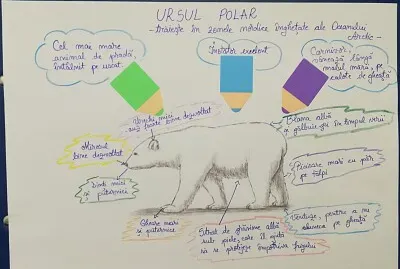 URSUL POLAR
-trăiește în zonele nordice înghețate ale Oceanului
Arctic-
Cel mai mare
animal de pradă,
întâlnit pe uscat.
Înotător excelent
Carnivor,
vânează lângă
malul mării, pe
calote de gheață
Urechi mici
Blană albă
și gălbuie-gri în timpul verii
Mirosul
bine dezvoltat
Picioare mari cu păr
pe tălpi
Dinți mici
și puternici
Gheare mari
și puternice
Strat de grăsime albă
sub piele, care îl ajută
să se protejeze împotriva frigului
Ventuze, pentru a nu
aluneca pe gheață